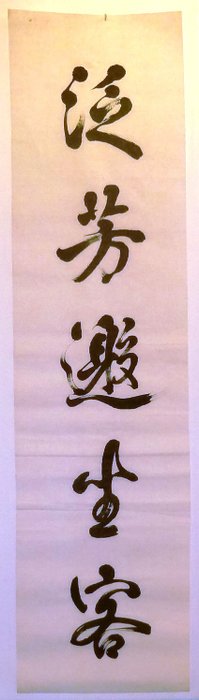 泛芳邀坐客